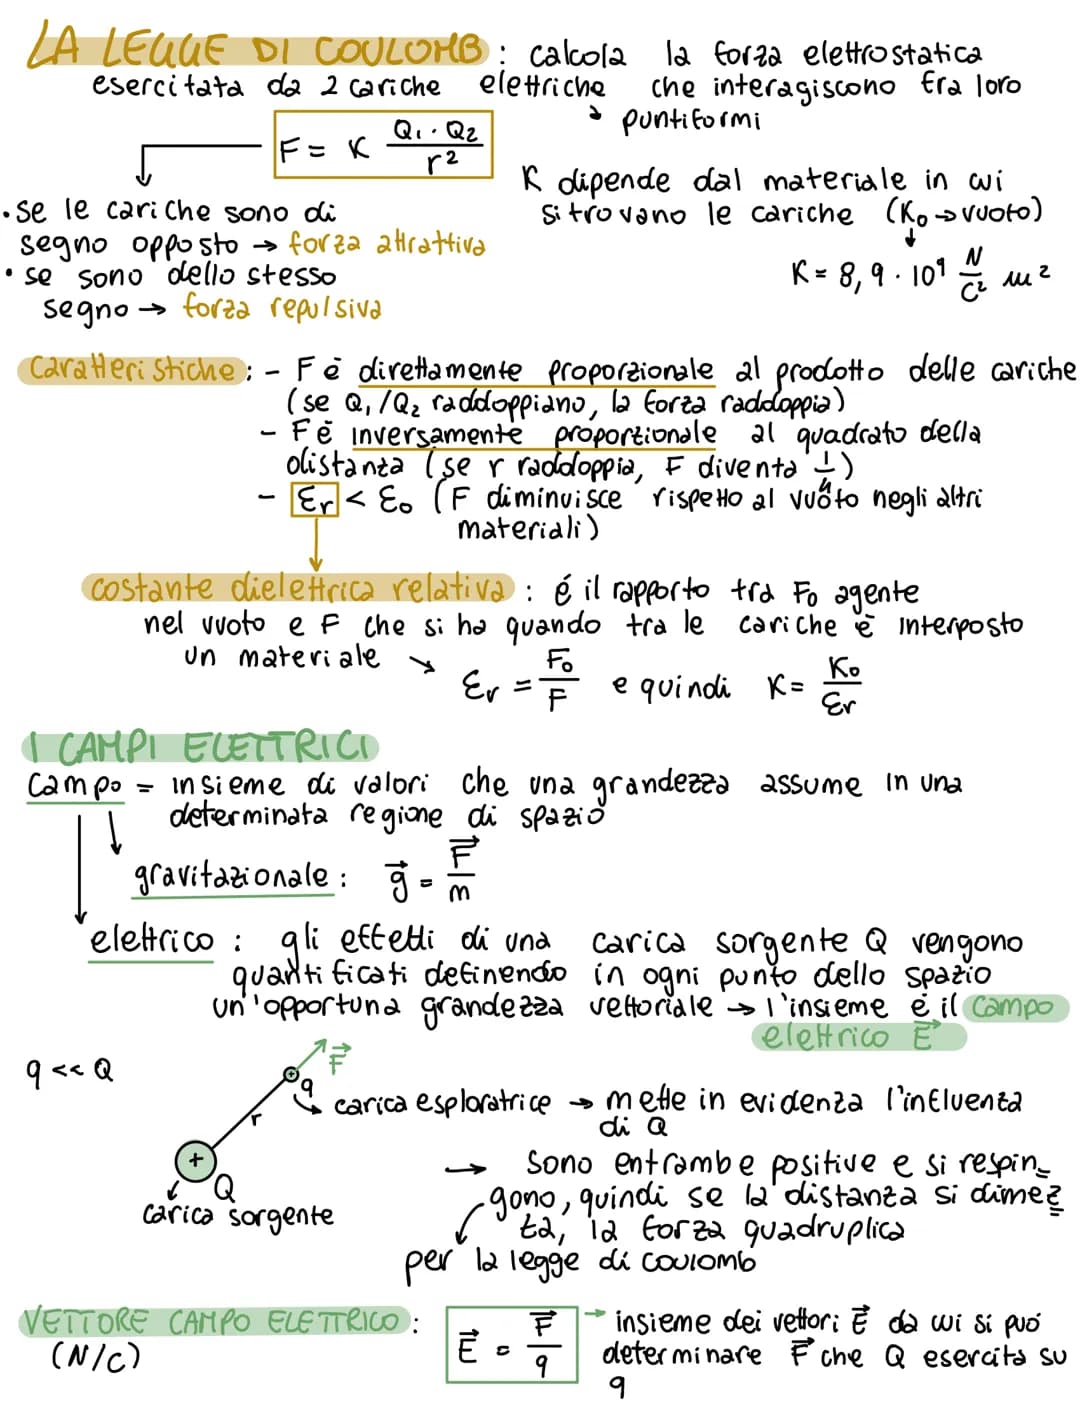 LA LEGGE DI COULOMB : calcola la forza elettrostatica
esercitata da 2 cariche elettriche che interagiscono tra loro
puntiformi
F = K Q₁ · Q₂ / r²
K dipende dal materiale in cui
si trovano le cariche (K₀ → vuoto)
K = 8,9 · 10⁹ N/C² m²
• se le cariche sono di
segno opposto → forza attrattiva
• se sono dello stesso
segno → forza repulsiva
Caratteristiche : - F è direttamente proporzionale al prodotto delle cariche
(se Q₁/Q₂ raddoppiano, la forza raddoppia)
- F è inversamente proporzionale al quadrato della
distanza (se r raddoppia, F diventa 1/4)
- Ɛr < Ɛ₀ (F diminuisce rispetto al vuoto negli altri
materiali)
costante dielettrica relativa : é il rapporto tra F₀ agente
nel vuoto e F che si ha quando tra le cariche è interposto
un materiale → Ɛr = F₀/F e quindi K = K₀/Ɛr
I CAMPI ELETTRICI
Campo = insieme di valori che una grandezza assume in una
determinata regione di spazio
gravitazionale : g⃗ = F⃗/m
elettrico : gli effetti di una carica sorgente Q vengono
quantificati definendo in ogni punto dello spazio
un'opportuna grandezza vettoriale → l'insieme é il campo
elettrico E⃗
q << Q
F⃗
q
carica esploratrice → mette in evidenza l'influenza
di Q
r
+
Q
carica sorgente
→ Sono entrambe positive e si respin=
gono, quindi se la distanza si dimez=
za, la forza quadruplica
per la legge di Coulomb
VETTORE CAMPO ELETTRICO :
(N/C)
E⃗ = F⃗/q
→ insieme dei vettori E⃗ da cui si può
determinare F⃗ che Q esercita su
q